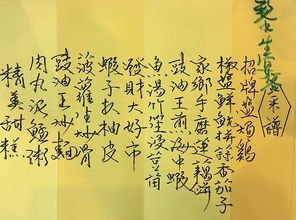 菜譜
招牌鹽焗鷄
椒鹽鮮魷拼蒜香茄子
家鄉手磨蓮藕餅
豉油王煎海中蝦
魚湯竹笙浸豆苗
發財大好市
蝦子扒柚皮
菠蘿生炒骨
豉油王炒麵
肉丸泥鯭粥
精美甜糕